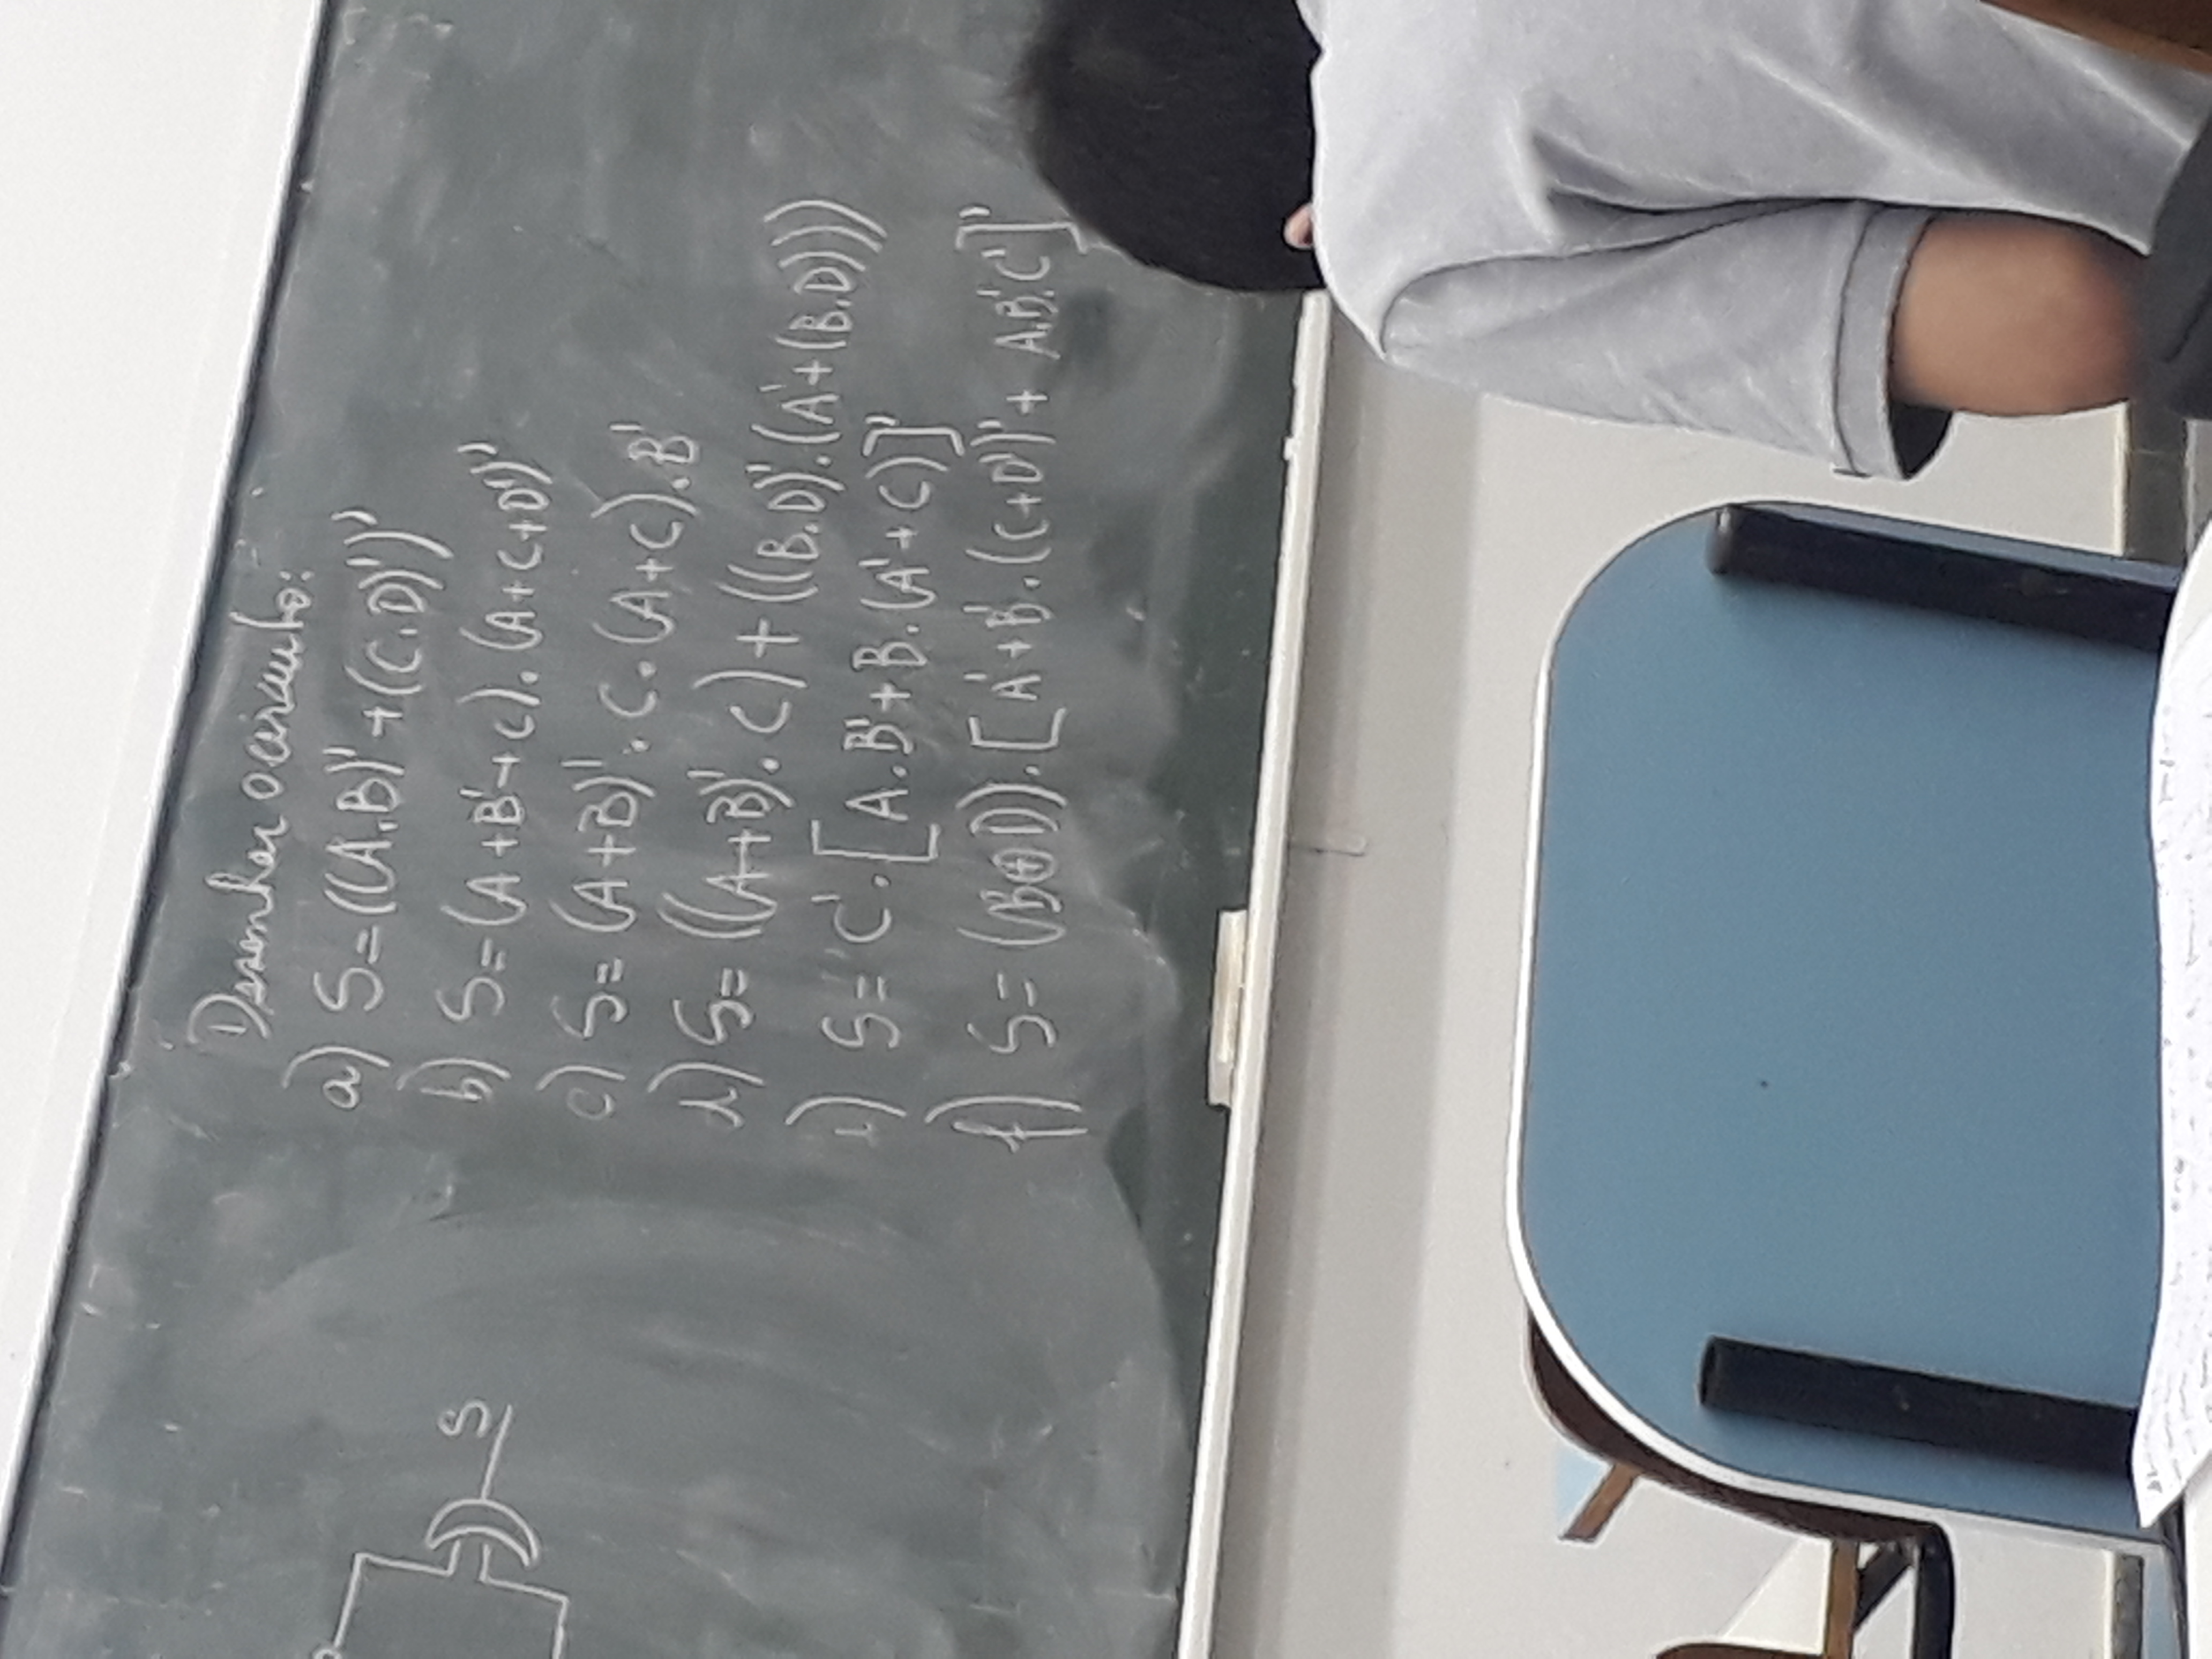 S
Desenhar o circuito:
a) S=((A.B)'+(C.D)')'
b) S=(A+B'+C).(A+C+D')'
c) S=(A+B)'.C.(A+C).B'
d) S=((A+B)'.C)+((B.D)'.(A'+(B.D)))
e) S=C'.[A.B'+B.(A'+C)]'
f) S=(B⊕D).[A'+B'.(C+D')'+A.B'.C']'